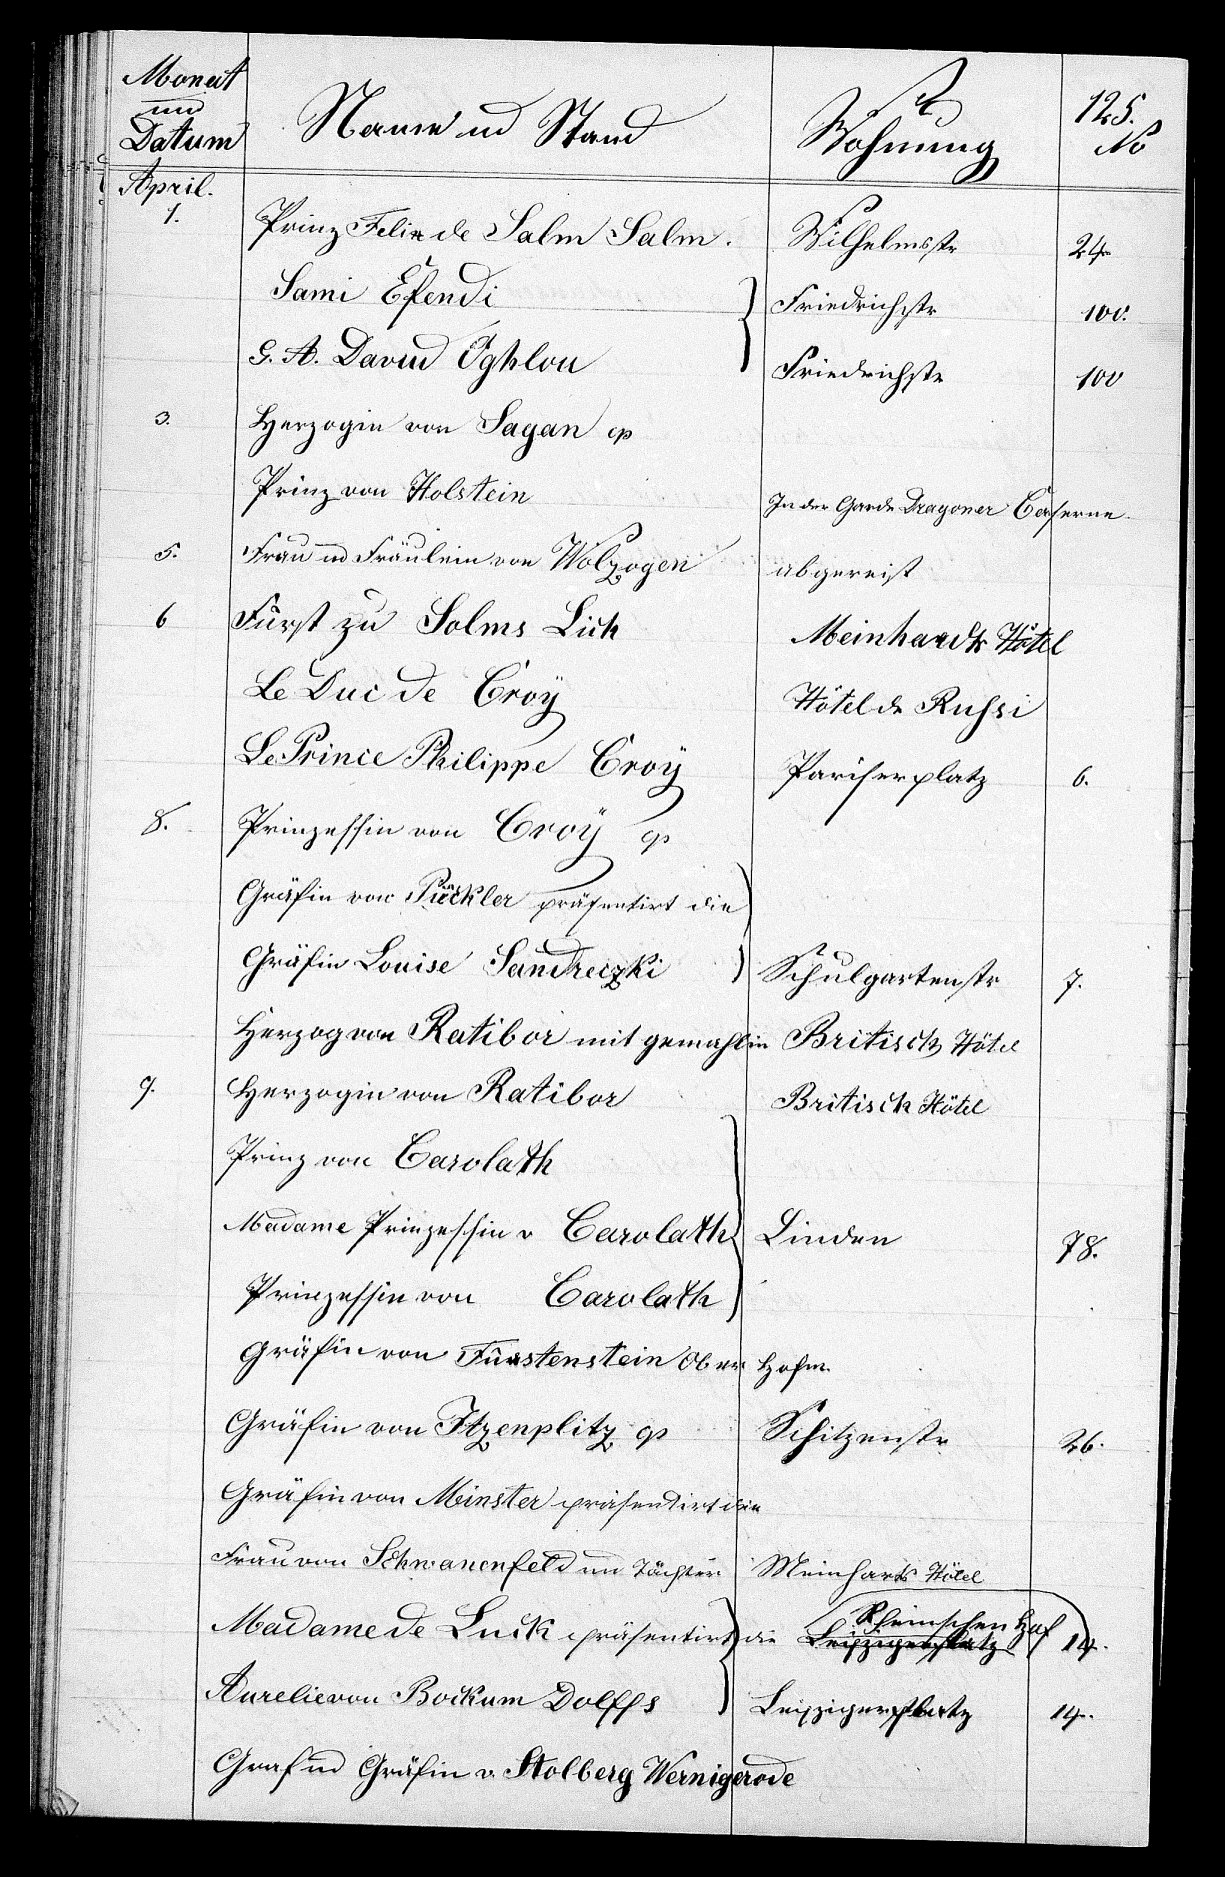 Monat
und
Datum
Name und Stand
Wohnung
125.
No
April.
1. Prinz Felix de Salm Salm. Wilhelmsstr 24
Sami Efendi Friedrichstr 100.
G. A. Davud Oghlou Friedrichstr 100
3. Herzogin von Sagan
Prinz von Holstein In der Garde Dragoner Caserne
5. Frau und Fräulein von Wolzogen abgereist
6 Fürst zu Solms Lich Meinhardts Hôtel
Le Duc de Croÿ Hôtel de Russi
Le Prince Philippe Croÿ Pariserplatz 6.
8. Prinzessin von Croÿ
Gräfin von Pückler präsentirt die
Gräfin Louise Sandreczki Schulgartenstr 7.
Herzog von Ratibor mit gemahlin Britisch Hôtel
9. Herzogin von Ratibor Britisch Hôtel
Prinz von Carolath
Madame Prinzessin v Carolath Linden 78.
Prinzessin von Carolath
Gräfin von Fürstenstein Ober Hofm.
Gräfin von Itzenplitz Schitzenstr 26.
Gräfin von Münster präsentirt die
Frau von Schwanenfeld un Töchter Meinharts Hôtel
Rheinschen Hof
Madame de Luck präsentirt die Leipzigerplatz 14.
Aurelie von Bockum Dolffs Leipzigerplatz 14.
Graf und Gräfin v. Stolberg Wernigerode